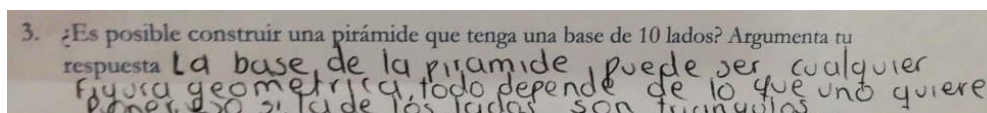 3. ¿Es posible construir una pirámide que tenga una base de 10 lados? Argumenta tu
respuesta La base de la piramide, puede ser cualquier
figura geometrica, todo depende de lo que uno quiere
poner, eso si la de los lados son triangulos